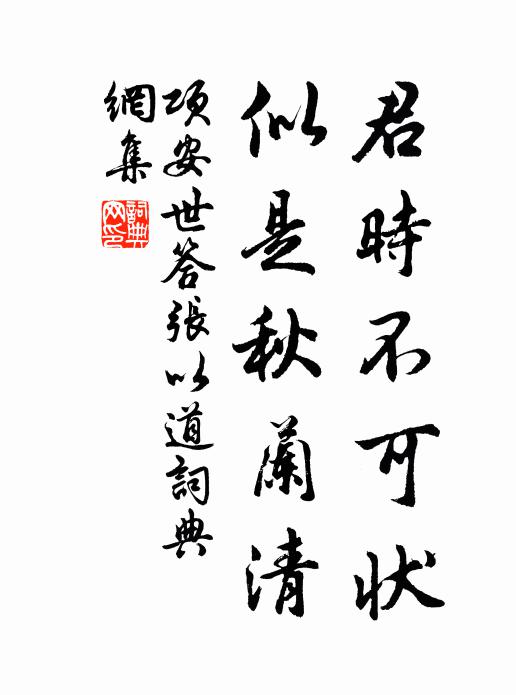 君時不可狀
似是秋蘭清
項安世答張以道詞典
網集
詞典
网印